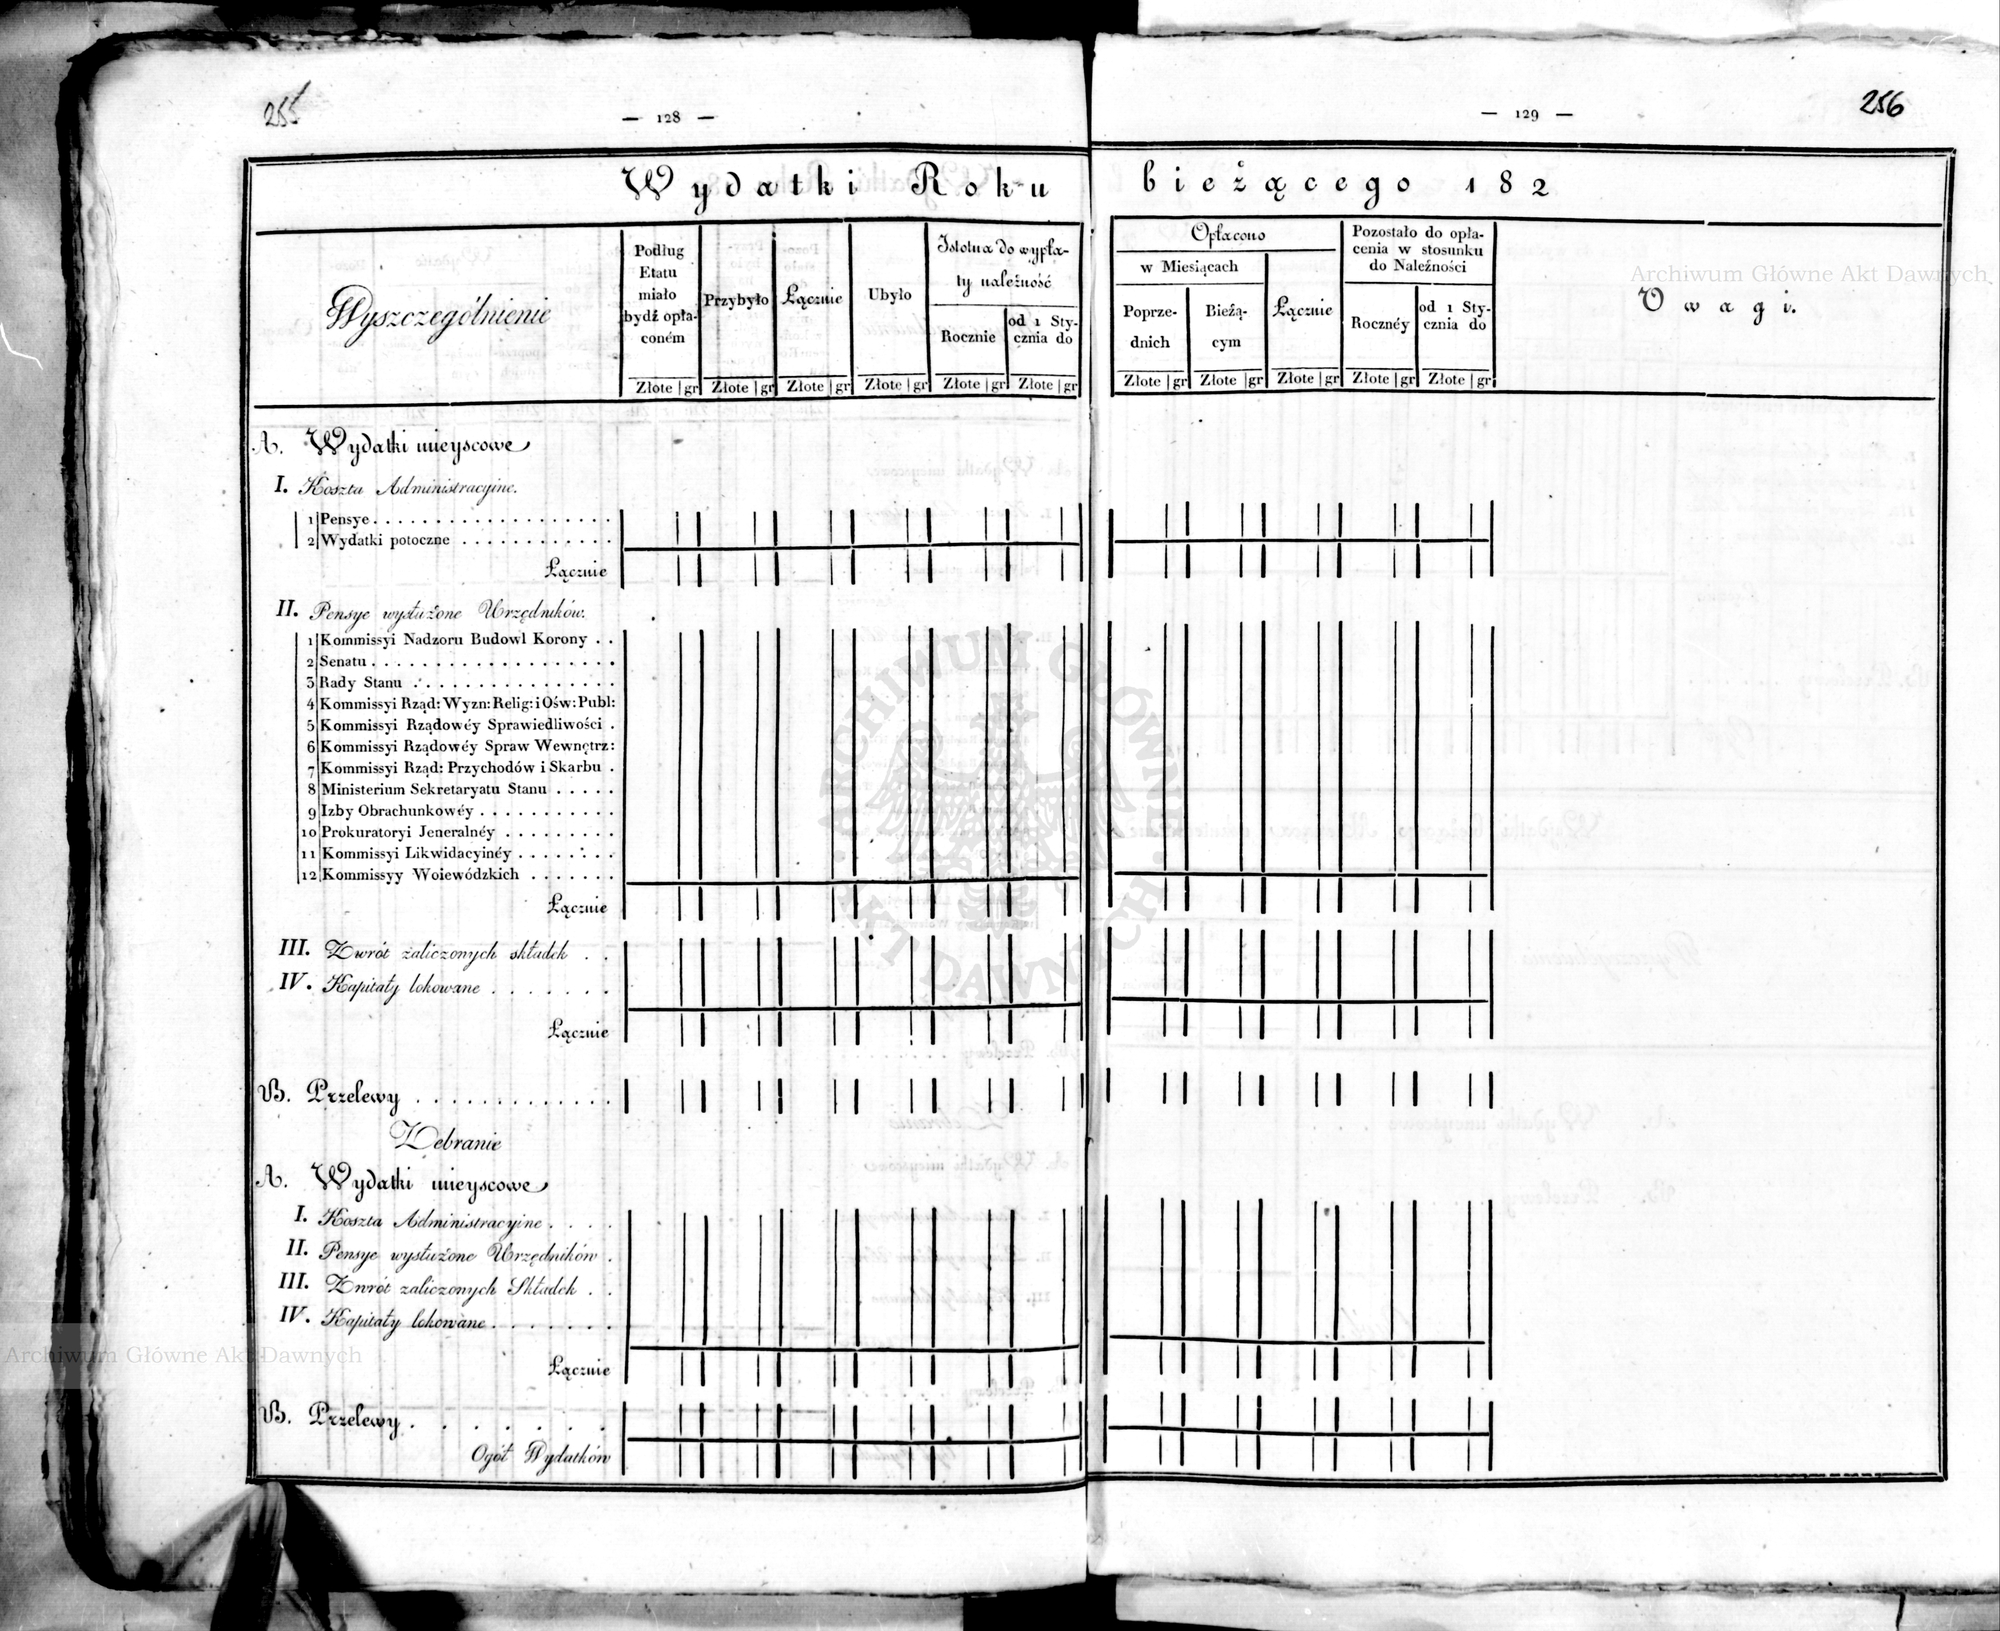 255
— 128 —
— 129 —
256
Wydatki Roku bieżącego 182
Wyszczególnienie
Podług
Etatu
miało
bydź opła-
coném
Przybyło
Łącznie
Ubyło
Istotna do wypła-
ty należność
Rocznie
od 1 Sty-
cznia do
Opłacono
w Miesiącach
Poprze-
dnich
Bieżą-
cym
Łącznie
Pozostało do opła-
cenia w stosunku
do Należności
Rocznéy
od 1 Sty-
cznia do
Uwagi.
Złote | gr Złote | gr Złote | gr Złote | gr Złote | gr Złote | gr
Złote | gr Złote | gr Złote | gr Złote | gr Złote | gr
A. Wydatki mieyscowe
I. Koszta Administracyine.
1 Pensye . . . . . . . . . . . . . . . . . . .
2 Wydatki potoczne . . . . . . . . . . . .
Łącznie
II. Pensye wysłużone Urzędników.
1 Kommissyi Nadzoru Budowl Korony . .
2 Senatu . . . . . . . . . . . . . . . . . . .
3 Rady Stanu . . . . . . . . . . . . . . . .
4 Kommissyi Rząd: Wyzn: Relig: i Ośw: Publ:
5 Kommissyi Rządowéy Sprawiedliwości .
6 Kommissyi Rządowéy Spraw Wewnętrz:
7 Kommissyi Rząd: Przychodów i Skarbu .
8 Ministerium Sekretaryatu Stanu . . . . .
9 Izby Obrachunkowéy . . . . . . . . . . .
10 Prokuratoryi Jeneralnéy . . . . . . . . .
11 Kommissyi Likwidacyinéy . . . . . . . .
12 Kommissyy Woiewódzkich . . . . . . .
Łącznie
III. Zwrót zaliczonych składek . .
IV. Kapitały lokowane . . . . . . .
Łącznie
B. Przelewy . . . . . . . . . . . . .
Zebranie
A. Wydatki mieyscowe
I. Koszta Administracyine . . . .
II. Pensye wysłużone Urzędników .
III. Zwrót zaliczonych Składek . .
IV. Kapitały lokowane . . . . . . .
Łącznie
B. Przelewy . . . . . . .
Ogół Wydatków
Archiwum Główne Akt Dawnych
Archiwum Główne Akt Dawnych
ARCHIWUM GŁÓWNE AKT DAWNYCH